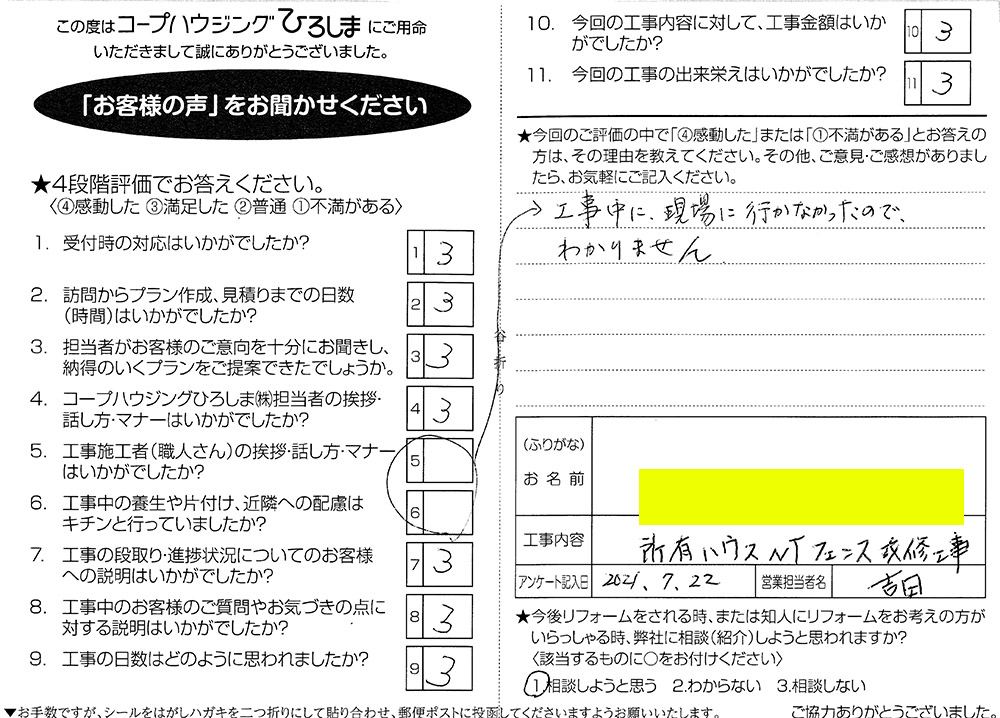 この度はコープハウジングひろしまにご用命
いただきまして誠にありがとうございました。
「お客様の声」をお聞かせください
★4段階評価でお答えください。
〈④感動した ③満足した ②普通 ①不満がある〉
1. 受付時の対応はいかがでしたか?
1 3
2. 訪問からプラン作成、見積りまでの日数
(時間)はいかがでしたか?
2 3
3. 担当者がお客様のご意向を十分にお聞きし、
納得のいくプランをご提案できたでしょうか。
3 3
4. コープハウジングひろしま㈱担当者の挨拶・
話し方・マナーはいかがでしたか?
4 3
5. 工事施工者(職人さん)の挨拶・話し方・マナー
はいかがでしたか?
5
6. 工事中の養生や片付け、近隣への配慮は
キチンと行っていましたか?
6
7. 工事の段取り・進捗状況についてのお客様
への説明はいかがでしたか?
7 3
8. 工事中のお客様のご質問やお気づきの点に
対する説明はいかがでしたか?
8 3
9. 工事の日数はどのように思われましたか?
9 3
▼お手数ですが、シールをはがしハガキを二つ折りにして貼り合わせ、郵便ポストに投函してくださいますようお願いいたします。
谷折り
10. 今回の工事内容に対して、工事金額はいか
がでしたか?
10 3
11. 今回の工事の出来栄えはいかがでしたか?
11 3
★今回のご評価の中で「④感動した」または「①不満がある」とお答えの
方は、その理由を教えてください。その他、ご意見・ご感想がありまし
たら、お気軽にご記入ください。
→工事中に、現場に行かなかったので、
わかりません
(ふりがな)
お名前
工事内容 所有ハウスNTフェンス改修工事
アンケート記入日 2021.7.22 営業担当者名 吉田
★今後リフォームをされる時、または知人にリフォームをお考えの方が
いらっしゃる時、弊社に相談(紹介)しようと思われますか?
〈該当するものに○をお付けください〉
1.相談しようと思う 2.わからない 3.相談しない
ご協力ありがとうございました。